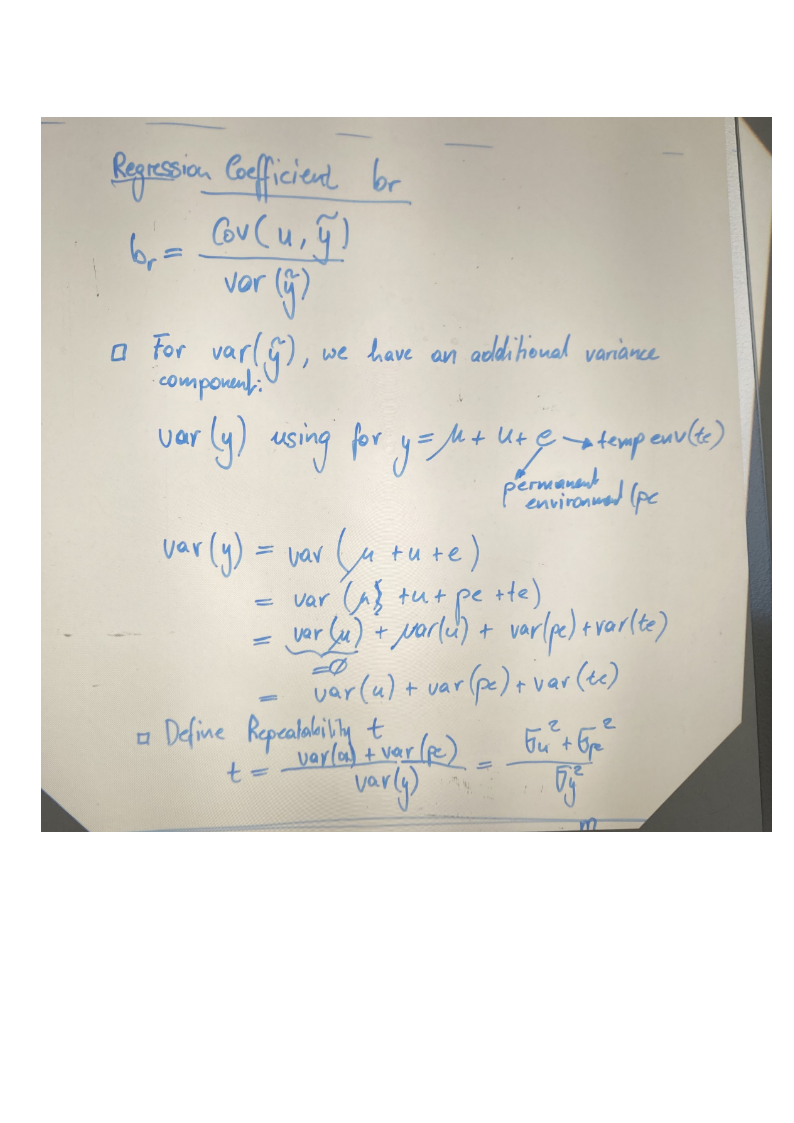 Regression Coefficient br
br = Cov(u, ỹ) / var(ỹ)
□ For var(ỹ), we have an additional variance
component:
var(y) using for y = μ + u + e → temp env(te)
permanent
environment (pe
var(y) = var(μ + u + e)
= var(μ} + u + pe + te)
= var(μ) + var(u) + var(pe) + var(te)
=∅
= var(u) + var(pe) + var(te)
□ Define Repeatability t
t = (var(u) + var(pe)) / var(y) = (σu² + σpe²) / σy²